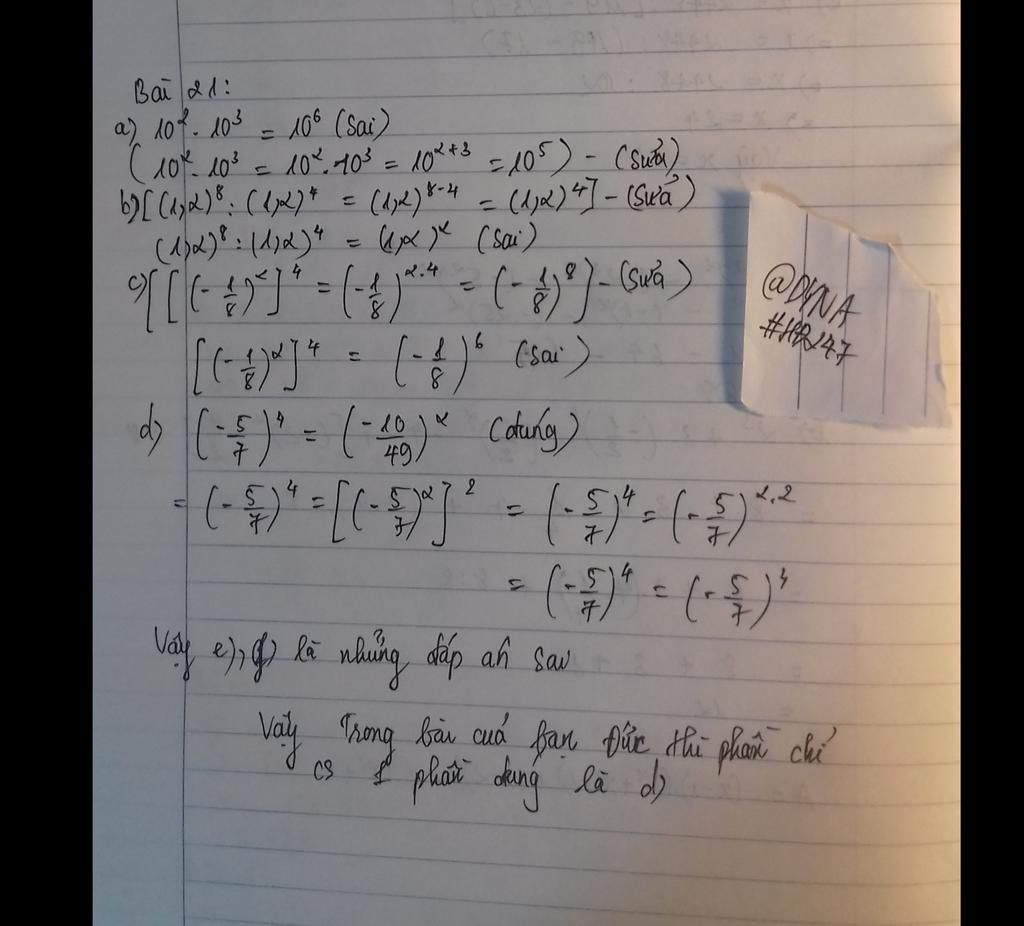 Bài 21:
a) 10² . 10³ = 10⁶ (sai)
(10² . 10³ = 10² . 10³ = 10²⁺³ = 10⁵) - (sửa)
b) [(1,2)⁸ : (1,2)⁴ = (1,2)⁸⁻⁴ = (1,2)⁴] - (sửa)
(1,2)⁸ : (1,2)⁴ = (1,2)² (sai)
c) [[(-1/8)²]⁴ = (-1/8)²·⁴ = (-1/8)⁸] - (sửa)
[(-1/8)²]⁴ = (-1/8)⁶ (sai)
d) (-5/7)⁴ = (-10/49)² (đúng)
= (-5/7)⁴ = [(-5/7)²]² = (-5/7)⁴ = (-5/7)²·²
= (-5/7)⁴ = (-5/7)⁴
Vậy e), là những đáp án sau
Vậy Trong bài cuả bạn Đức thì phần chỉ
có 1 phần đúng là d)
@DYNA